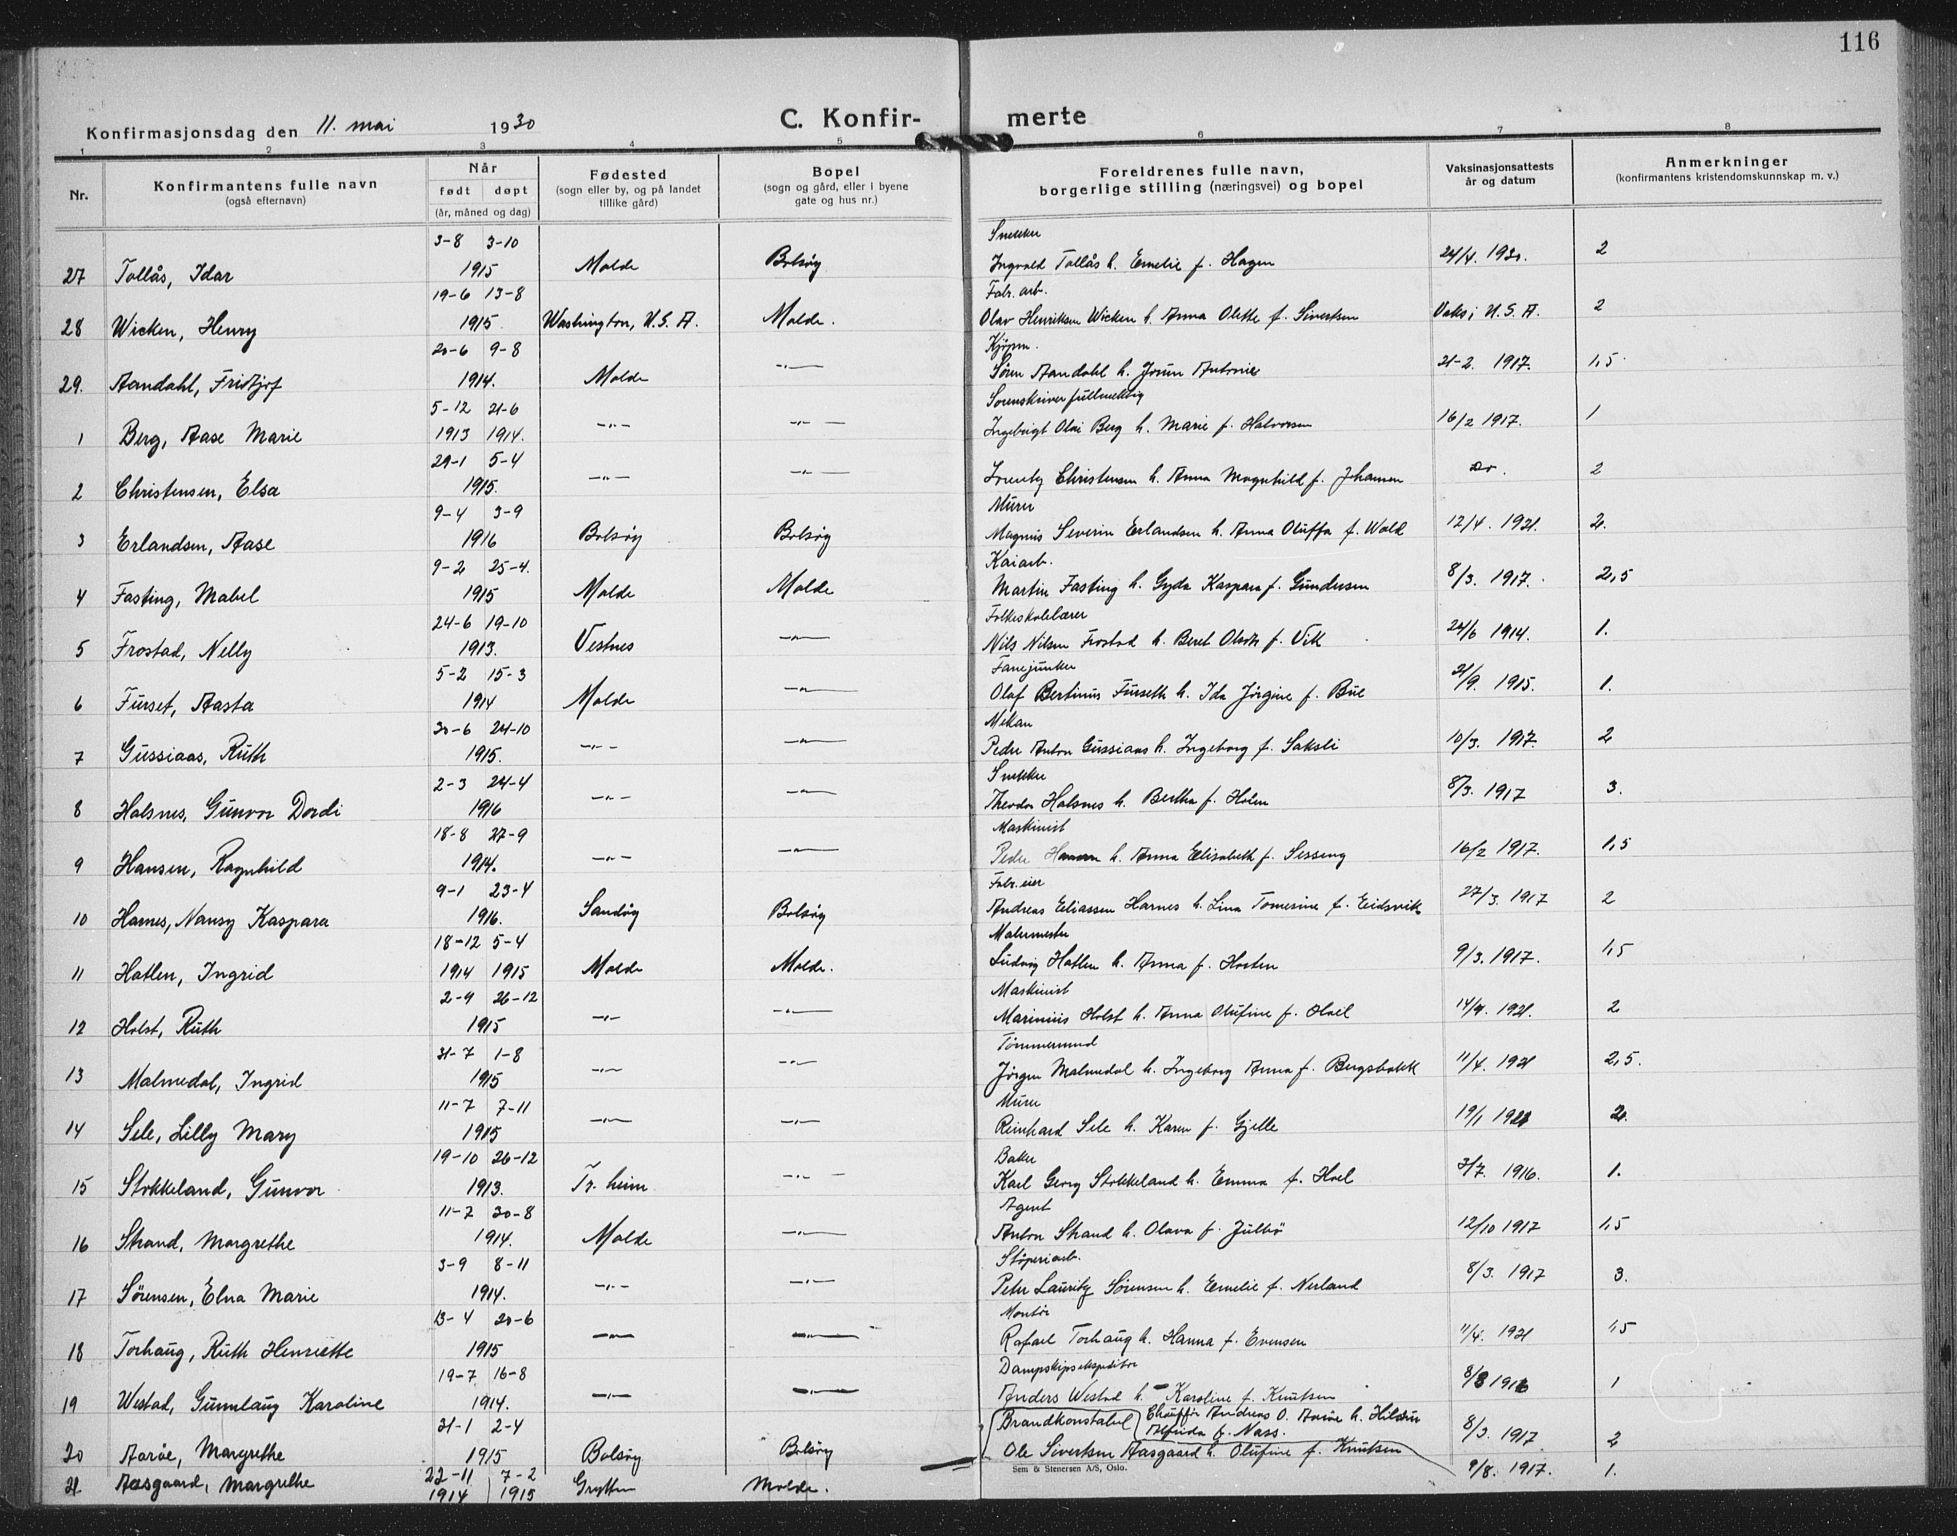 116
Konfirmasjonsdag den 11. mai 1930
C. Konfir- merte
1 2 3 4 5 6 7 8
Nr. Konfirmantens fulle navn (også efternavn) Når født døpt (år, måned og dag) Fødested (sogn eller by, og på landet tillike gård) Bopel (sogn og gård, eller i byene gate og hus nr.) Foreldrenes fulle navn, borgerlige stilling (næringsvei) og bopel Vaksinasjonsattests år og datum Anmerkninger (konfirmantens kristendomskunnskap m. v.)
3-8 3-10 Snekker
27 Tollås, Idar 1915 Molde Bolsøy Ingvald Tollås h. Emelie f. Hagen 24/4. 1930. 2
19-6 13-8 Fabr. arb.
28 Wicken, Henry 1915 Washington, U.S.A. Molde. Olav Henriksen Wicken h. Anna Olette f. Sivertsen Vaks i U.S.A. 2
20-6 9-8 Kjøpm.
29. Aandahl, Fridtjof 1914. Molde -"- Søren Aandahl h. Antonie 21-2. 1917. 1,5
5-12 21-6 Sorenskriverfullmektig
1 Berg, Aase Marie 1913 1914. -"- -"- Ingebrigt Olai Berg h. Marie f. Halvorsen 16/2 1917. 1
29-1 5-4
2 Christensen, Elsa 1915. -"- -"- Christensen h. Anna Magnhild f. Johansen Do. 2
9-4 3-9 Murer
3 Erlandsen, Aase 1916 Bolsøy Bolsøy Magnus Severin Erlandsen h. Anna Oluffa f. Wold 12/4. 1921. 2.
9-2 25-4. Kaiarb.
4 Fasting, Mabel 1915 Molde Molde Martin Fasting h. Gyda Kaspara f. Gundersen 8/3. 1917. 2,5
24-6 19-10 Folkeskolelærer
5 Frostad, Nelly 1913. Vestnes -"- Nils Nilsen Frostad h. Beret Olsdtr f. Vik 24/6 1914. 1.
5-2 15-3 Fanejunker
6 Furset, Aasta 1914 Molde -"- Olaf Bertinus Furseth h. Ida Jørgine f. Bue 21/9. 1915. 1.
30-6 24-10 Mekan
7 Gussiaas, Ruth 1915. -"- -"- Peder Anton Gussiaas h. Ingeborg f. Saksli 10/3. 1917. 2
2-3 24-4 Snekker
8 Halsnes, Gunvor Dordi 1916 -"- -"- Theodor Halsnes h. Bertha f. Hoem 8/3. 1917 3.
18-8 27-9 Maskinist
9 Hansen, Ragnhild 1914. -"- -"- Peder Hansen h. Anna Elisabeth f. Sesseng 16/2 1917. 1,5
9-1 23-4 Fabr.eier
10 Harnes, Nansy Kaspara 1916. Sandøy Bolsøy Andreas Eliassen Harnes h. Lina Tomerine f. Eidsvik 27/3. 1917 2
18-12 5-4 Malermester
11 Hatlen, Ingrid 1914 1915 Molde Molde. Ludvig Hatlen h. Anna f. Horten 9/3. 1917. 1,5
2-9 26-12 Maskinist
12 Holst, Ruth 1915 -"- -"- Marinius Holst h. Anna Olufine f. Hoel 14/4. 1921. 2
31-7 1-8 Tømmermand
13 Malmedal, Ingrid 1915 -"- -"- Jørgen Malmedal h. Ingeborg Anna f. Bergsbakk 11/4. 1921 2,5.
11-7 7-11 Murer
14 Sele, Lilly Mary 1915 -"- -"- Reinhard Sele h. Karen f. Gjelle 19/1 1921 2.
19-10 26-12 Baker
15 Stokkeland, Gunvor 1913. Tr.heim -"- Karl Georg Stokkeland h. Emma f. Hoel 3/7. 1916. 1.
11-7 30-8 Agent
16 Strand, Margrethe 1914. Molde -"- Anton Strand h. Olava f. Julbø 12/10 1917 1,5
3-9 8-11 Støperiarb.
17 Sørensen, Elna Marie 1914. -"- -"- Peter Lauritz Sørensen h. Emelie f. Nerland 8/3. 1917 3.
13-4 20-6 Montør
18 Torhaug, Ruth Henriette 1915 -"- -"- Rafael Torhaug h. Hanna f. Evensen 11/4. 1921 1,5
19-7 16-8 Dampskipsekspeditør
19 Westad, Gunnlaug Karoline 1914. -"- -"- Anders Westad h. Karoline f. Knutsen 8/8 1916 1
31-1 2-4 Brandkonstabel Chauffør Andreas O. Aarøe h. Hildur Alfrida f. Næss.
20 Aarøe, Margrethe 1915 Bolsøy Bolsøy Ole Sivertsen Aasgaard h. Olufine f. Knutsen 8/3. 1917 2
Sem & Stenersen A/S, Oslo.
21 Aasgaard, Margrethe 22-11 1914 7-2 1915 Grytten Molde. 9/8. 1917. 1.